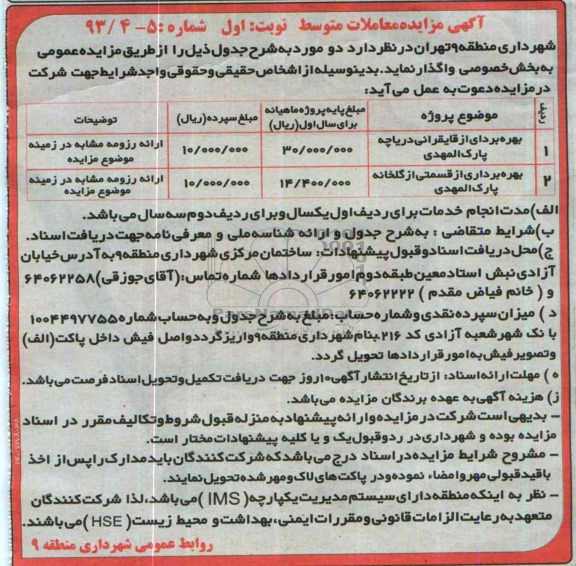 آگهی مزایده معاملات متوسط نوبت: اول شماره :۵- ۴ /۹۳
شهرداری منطقه ۹ تهران در نظر دارد دو مورد به شرح جدول ذیل را از طریق مزایده عمومی
به بخش خصوصی واگذار نماید. بدینوسیله از اشخاص حقیقی و حقوقی واجد شرایط جهت شرکت
در مزایده دعوت به عمل می آید:
ردیف موضوع پروژه مبلغ پایه پروژه ماهیانه برای سال اول (ریال) مبلغ سپرده (ریال) توضیحات
۱ بهره بردای از قایقرانی دریاچه پارک المهدی ۳۰/۰۰۰/۰۰۰ ۱۰/۰۰۰/۰۰۰ ارائه رزومه مشابه در زمینه موضوع مزایده
۲ بهره برداری از قسمتی از گلخانه پارک المهدی ۱۴/۴۰۰/۰۰۰ ۱۰/۰۰۰/۰۰۰ ارائه رزومه مشابه در زمینه موضوع مزایده
الف) مدت انجام خدمات برای ردیف اول یکسال و برای ردیف دوم سه سال می باشد.
ب) شرایط متقاضی : به شرح جدول و ارائه شناسه ملی و معرفی نامه جهت دریافت اسناد.
ج) محل دریافت اسناد و قبول پیشنهادات: ساختمان مرکزی شهرداری منطقه ۹ به آدرس خیابان
آزادی نبش استاد معین طبقه دوم امور قراردادها شماره تماس: (آقای جوزقی) ۶۴۰۶۲۲۵۸
و ( خانم فیاض مقدم ) ۶۴۰۶۲۲۲۲
د ) میزان سپرده نقدی و شماره حساب: مبلغ به شرح جدول و به حساب شماره ۱۰۰۴۴۹۷۷۵۵
با نک شهر شعبه آزادی کد ۲۱۶. بنام شهرداری منطقه ۹ واریز گردد و اصل فیش داخل پاکت (الف)
و تصویر فیش به امور قراردادها تحویل گردد.
ه ) مهلت ارائه اسناد: از تاریخ انتشار آگهی ۱۰ روز جهت دریافت تکمیل و تحویل اسناد فرصت می باشد.
ز) هزینه آگهی به عهده برندگان مزایده می باشد.
– بدیهی است شرکت در مزایده و ارائه پیشنهاد به منزله قبول شروط و تکالیف مقرر در اسناد
مزایده بوده و شهرداری در رد و قبول یک و یا کلیه پیشنهادات مختار است.
– مشروح شرایط مزایده در اسناد درج می باشد که شرکت کنندگان باید مدارک را پس از اخذ
با قید قبولی مهر و امضاء نموده و در پاکت های لاک و مهر شده تحویل نمایند.
– نظر به اینکه منطقه دارای سیستم مدیریت یکپارچه (IMS) می باشد، لذا شرکت کنندگان
متعهد به رعایت الزامات قانونی و مقررات ایمنی، بهداشت و محیط زیست (HSE) می باشند.
روابط عمومی شهرداری منطقه ۹